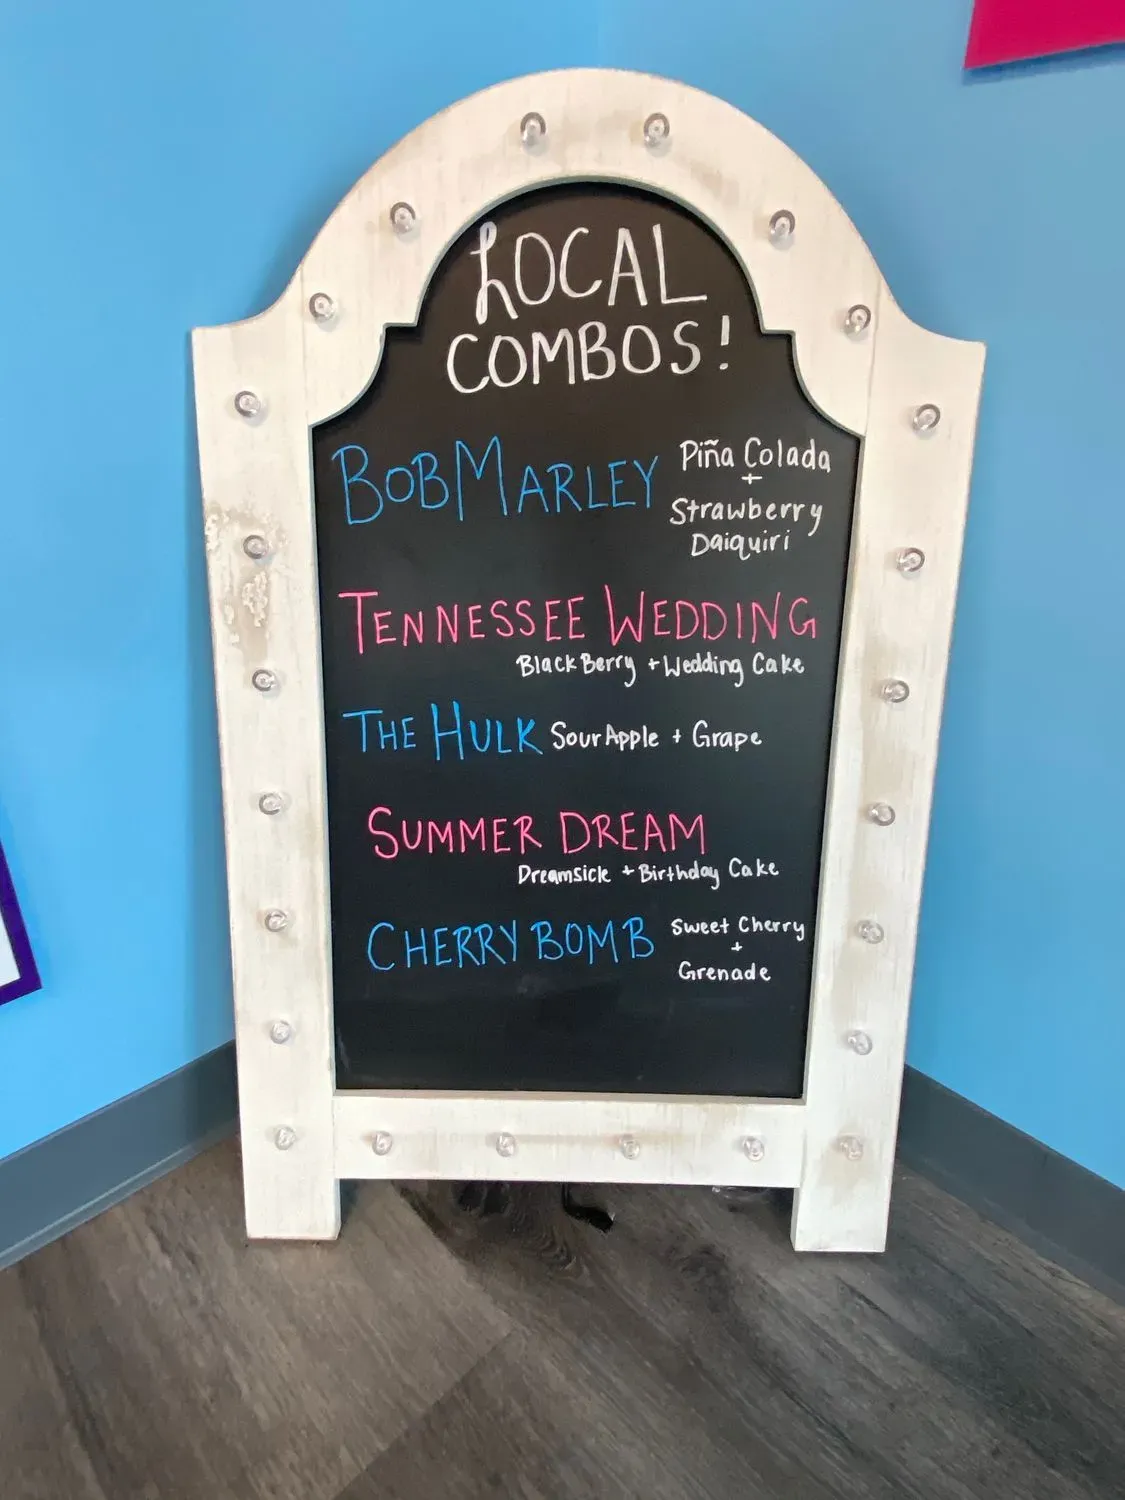 LOCAL
COMBOS!
BOB MARLEY
Piña Colada
+
Strawberry
Daiquiri
TENNESSEE WEDDING
BlackBerry + Wedding Cake
THE HULK Sour Apple + Grape
SUMMER DREAM
Dreamsicle + Birthday Cake
CHERRY BOMB
Sweet Cherry
+
Grenade